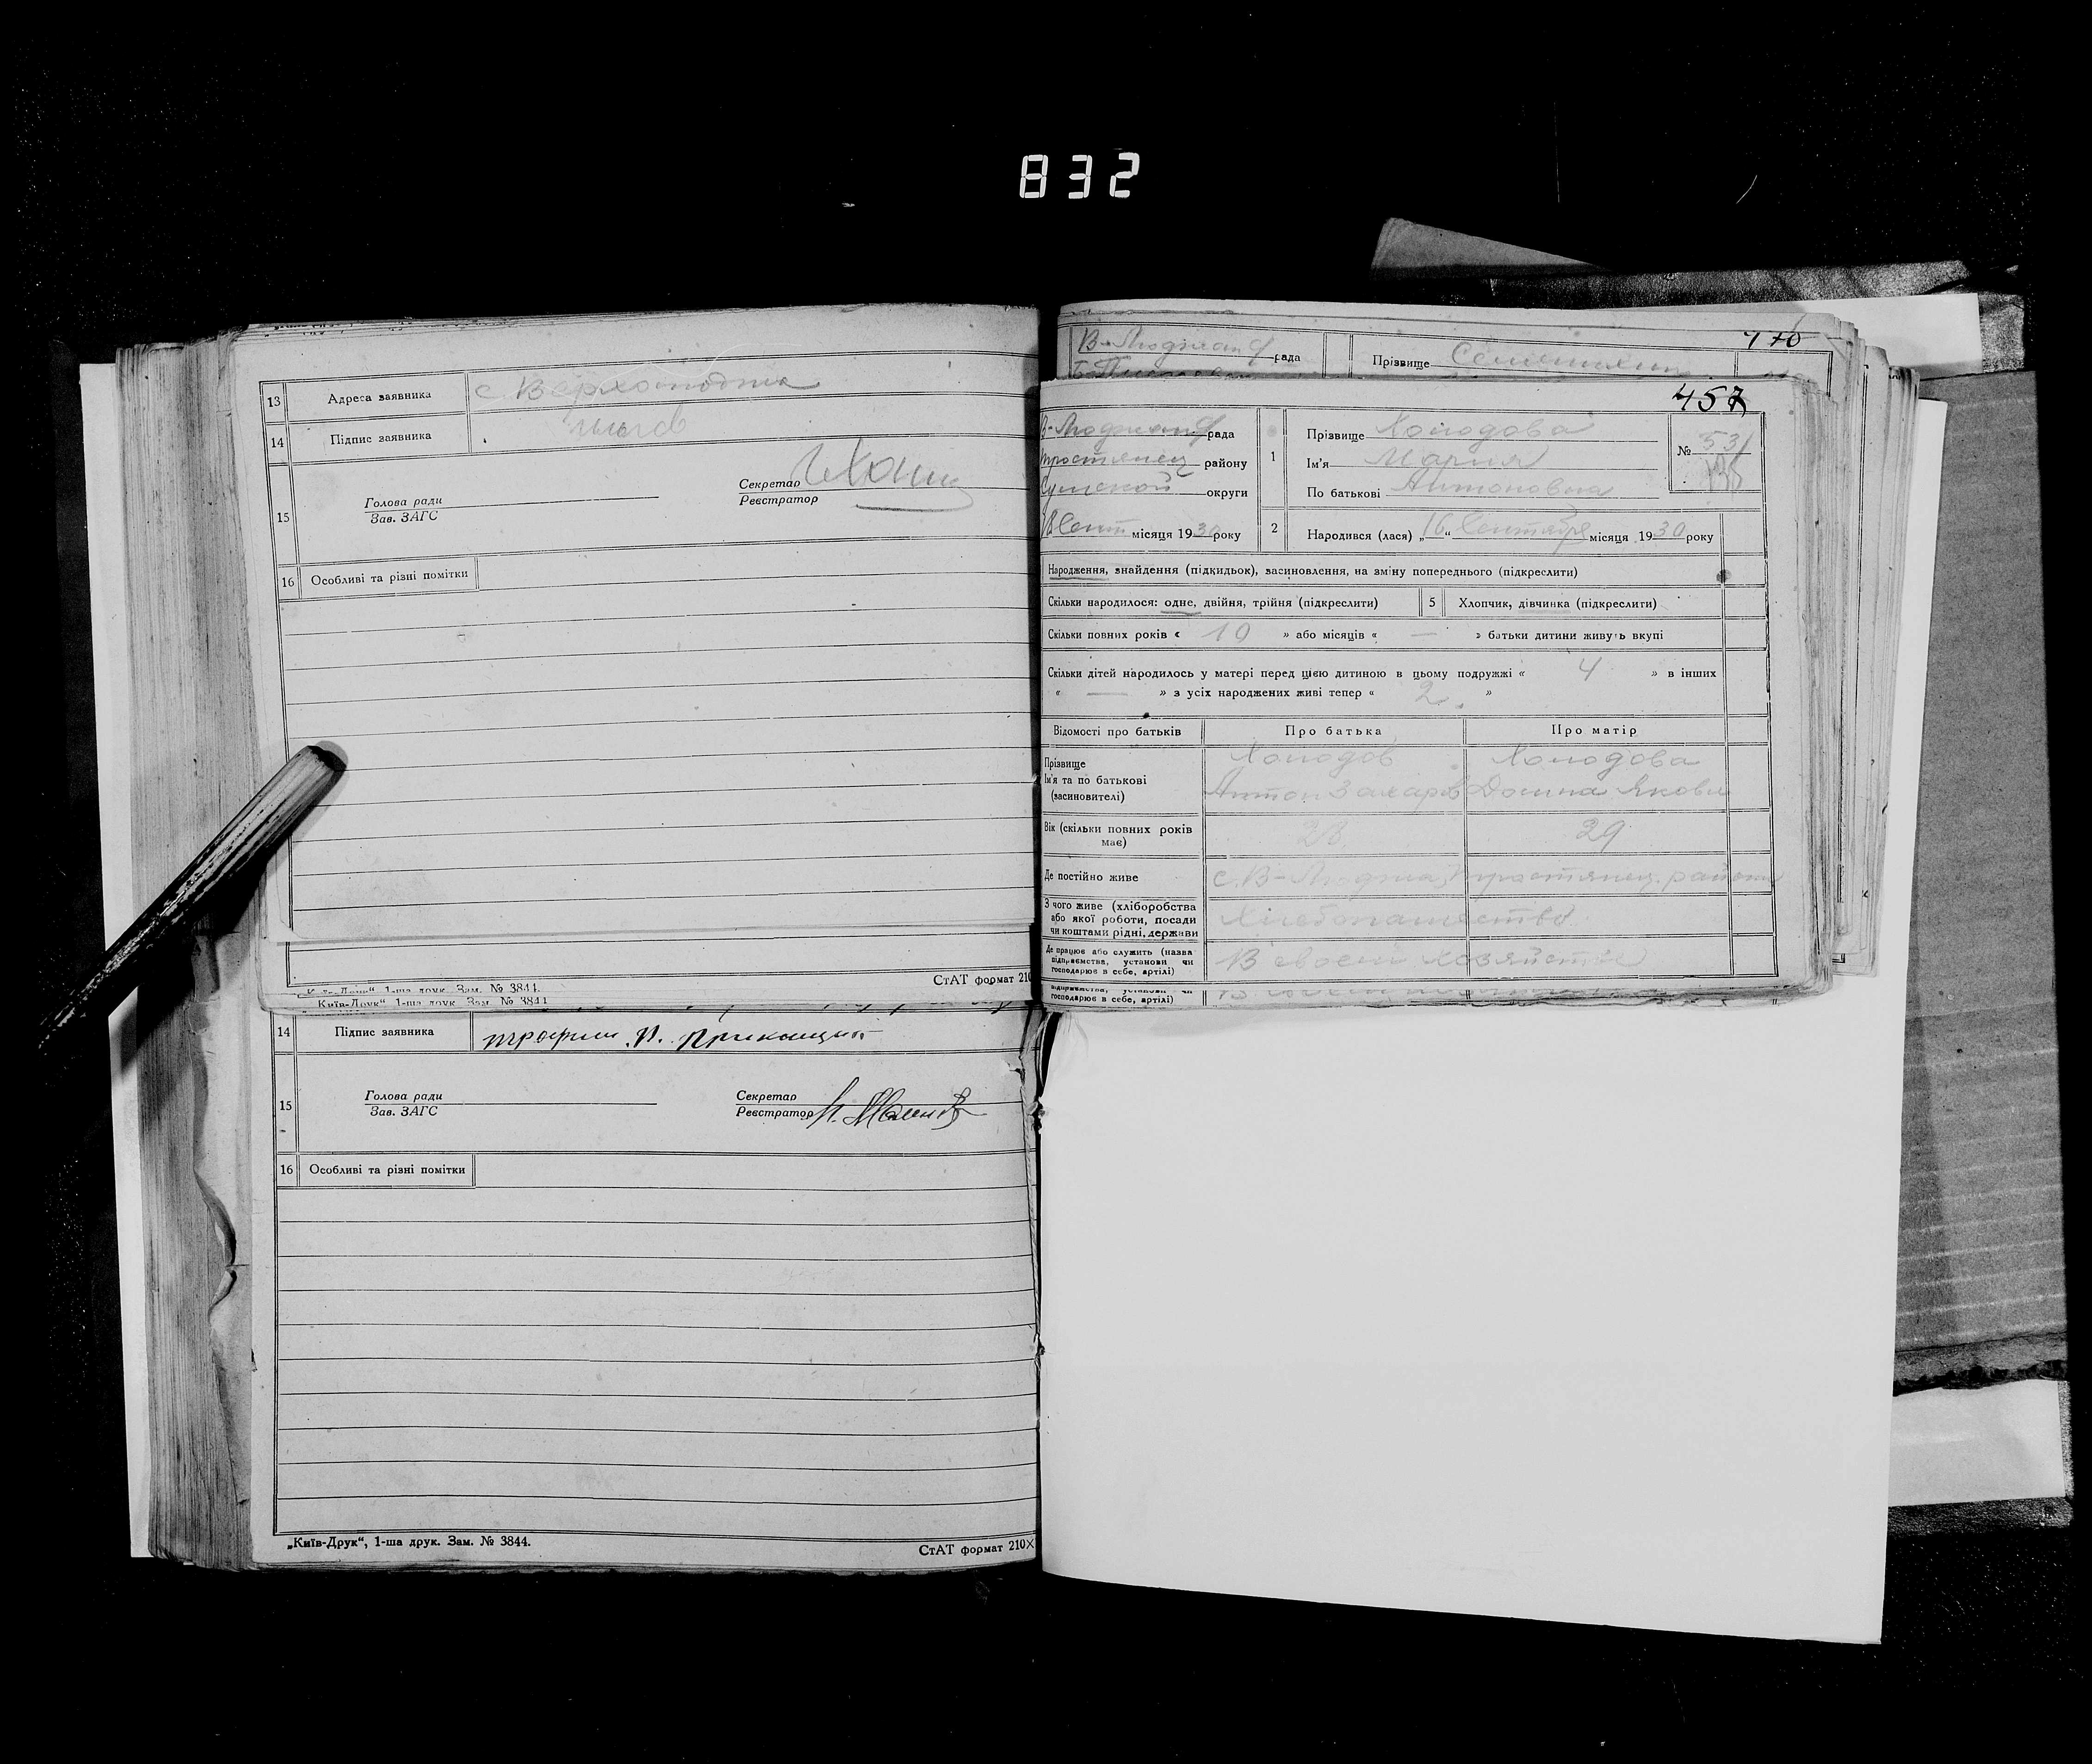 832
13 Адреса заявника с Верхолюджа
14 Підпис заявника
Секретар
Реєстратор
Голова ради
Зав. ЗАГС
15
16 Особливі та різні помітки
СтАТ формат 210
„Київ-Друк“ 1-ша друк. Зам. № 3844.
Київ-Друк“ 1-ша друк. Зам. № 3844
14 Підпис заявника
Голова ради
Зав. ЗАГС
15
Секретар
Реєстратор
16 Особливі та різні помітки
„Київ-Друк“, 1-ша друк. Зам. № 3844.
СтАТ формат 210×
470
рада
Прізвище
457
В-Люджан рада
Тростянец району
Сумской округи
Сент місяця 1930 року
1
Прізвище Холодова
Ім'я Мария
По батькові Антоновна
№ 531
2
Народився (лася) „16“ Сентября місяця 1930 року
Народження, знайдення (підкидьок), засиновлення, на зміну попереднього (підкреслити)
Скільки народилося: одне, двійня, трійня (підкреслити)
5 Хлопчик, дівчинка (підкреслити)
Скільки повних років « 10 » або місяців « — » батьки дитини живуть вкупі
Скільки дітей народилось у матері перед цією дитиною в цьому подружжі « 4 » в інших
« — » з усіх народжених живі тепер « 2 »
Відомості про батьків Про батька Про матір
Прізвище Холодов Холодова
Ім'я та по батькові Антон Захаров Домна Яковл
(засиновителі)
Вік (скільки повних років 28 29
має)
Де постійно живе с. В-Люджа, Тростянец. района
З чого живе (хліборобства
або якої роботи, посади Хлебопашество
чи коштами рідні, держави
Де працює або служить (назва
підприємства, установи чи В своем хозяйстве
господарює в себе, артілі)
підприємства, установи чи
господарює в себе, артілі)